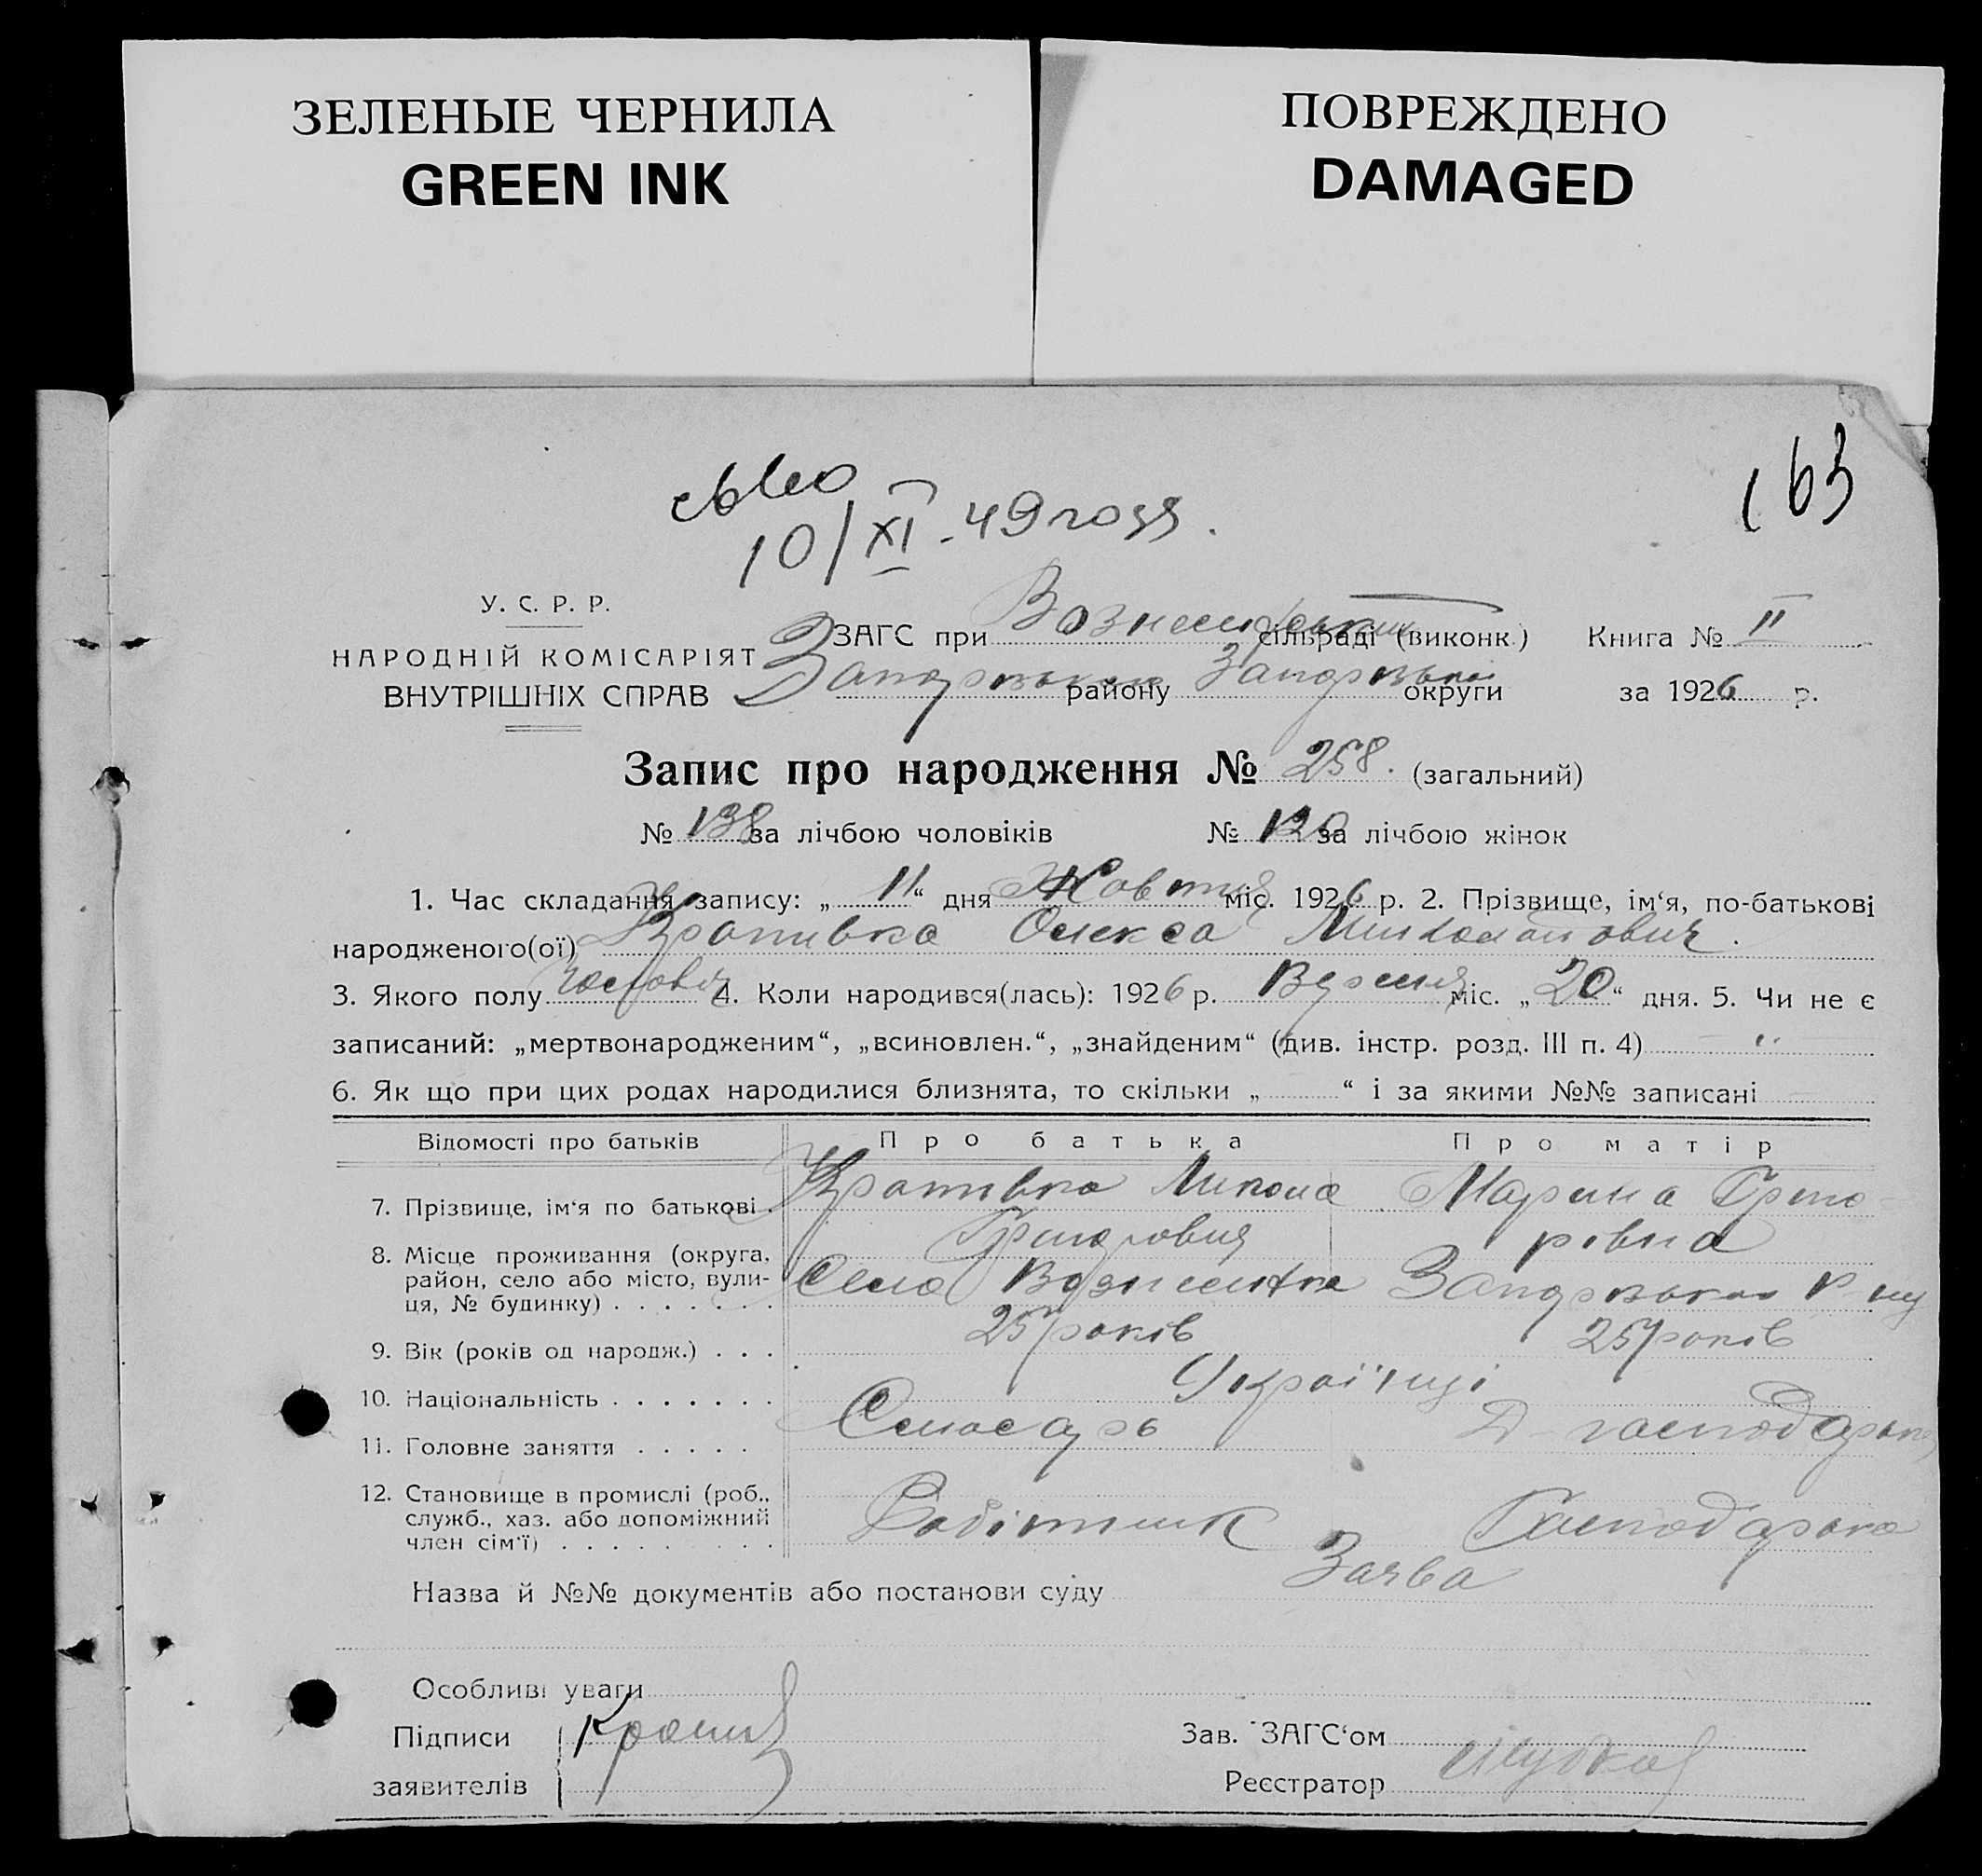 ЗЕЛЕНЫЕ ЧЕРНИЛА
GREEN INK
ПОВРЕЖДЕНО
DAMAGED
163
10/XI-49 года.
У. С. Р. Р.
НАРОДНІЙ КОМІСАРІЯТ
ВНУТРІШНІХ СПРАВ
ЗАГС при сільраді (виконк.) Книга № II
району округи за 1926 р.
Запис про народження № 258. (загальний)
№ 138 за лічбою чоловіків № 120 за лічбою жінок
1. Час складання запису: „ 11 “ дня Жовтня міс. 1926 р. 2. Прізвище, ім‘я, по-батькові
народженого(ої) Кропивка Олекса Миколайович.
3. Якого полу 4. Коли народився(лась): 1926 р. Вересня міс. „ 20 “ дня. 5. Чи не є
записаний: „мертвонародженим“, „всиновлен.“, „знайденим“ (див. інстр. розд. III п. 4)
6. Як що при цих родах народилися близнята, то скільки „ “ і за якими №№ записані
Відомості про батьків Про батька Про матір
7. Прізвище, ім‘я по батькові . Кропивка Микола Григорович Марина Григорівна
8. Місце проживання (округа, район, село або місто, вулиця, № будинку) . . . . . . . Село Вознесенка
9. Вік (років од народж.) . . . 25 років 25 років
10. Національність . . . . . . . Українці
11. Головне заняття . . . . . Слюсарь Д-господарка
12. Становище в промислі (роб., служб., хаз. або допоміжний член сім‘ї) . . . . . . . . . Робітник Господарка
Назва й №№ документів або постанови суду Заява
Особливі уваги
Підписи
заявителів
Зав. ЗАГС‘ом
Реєстратор